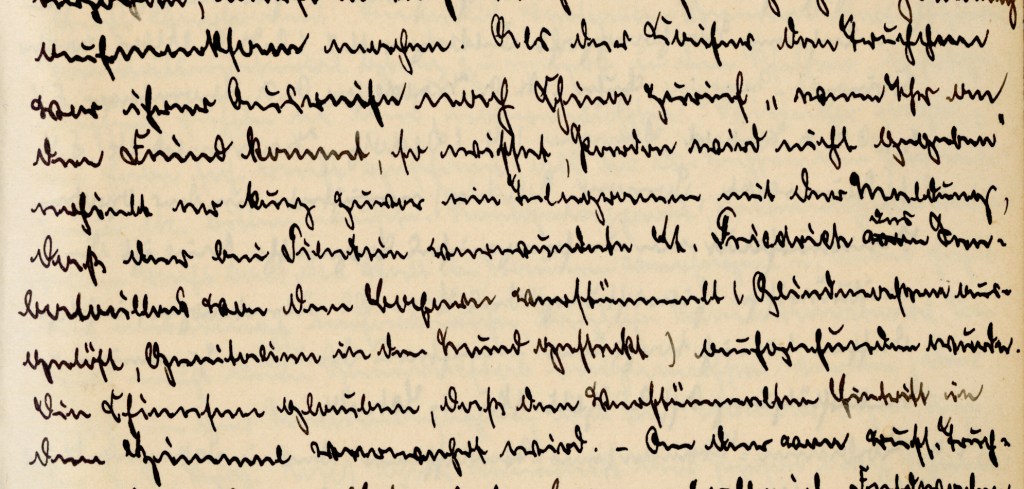 aufmerksam machen. Als der Kaiser den Truppen
vor ihrer Ausreise nach China zurief „wenn Ihr an
den Feind kommt, so wisset, Pardon wird nicht gegeben"
erhielt er kurz zuvor ein Telegramm mit der Meldung,
dass der bei Tientsin verwundete Lt. Friedrich des See-
bataillons von den Boxern verstümmelt (Gliedmassen aus-
gelöst, Genitalien in den Mund gesteckt) aufgefunden wurde.
Die Chinesen glauben, dass den Verstümmelten Eintritt in
den Himmel verwehrt wird. – An den von russ. Trup-